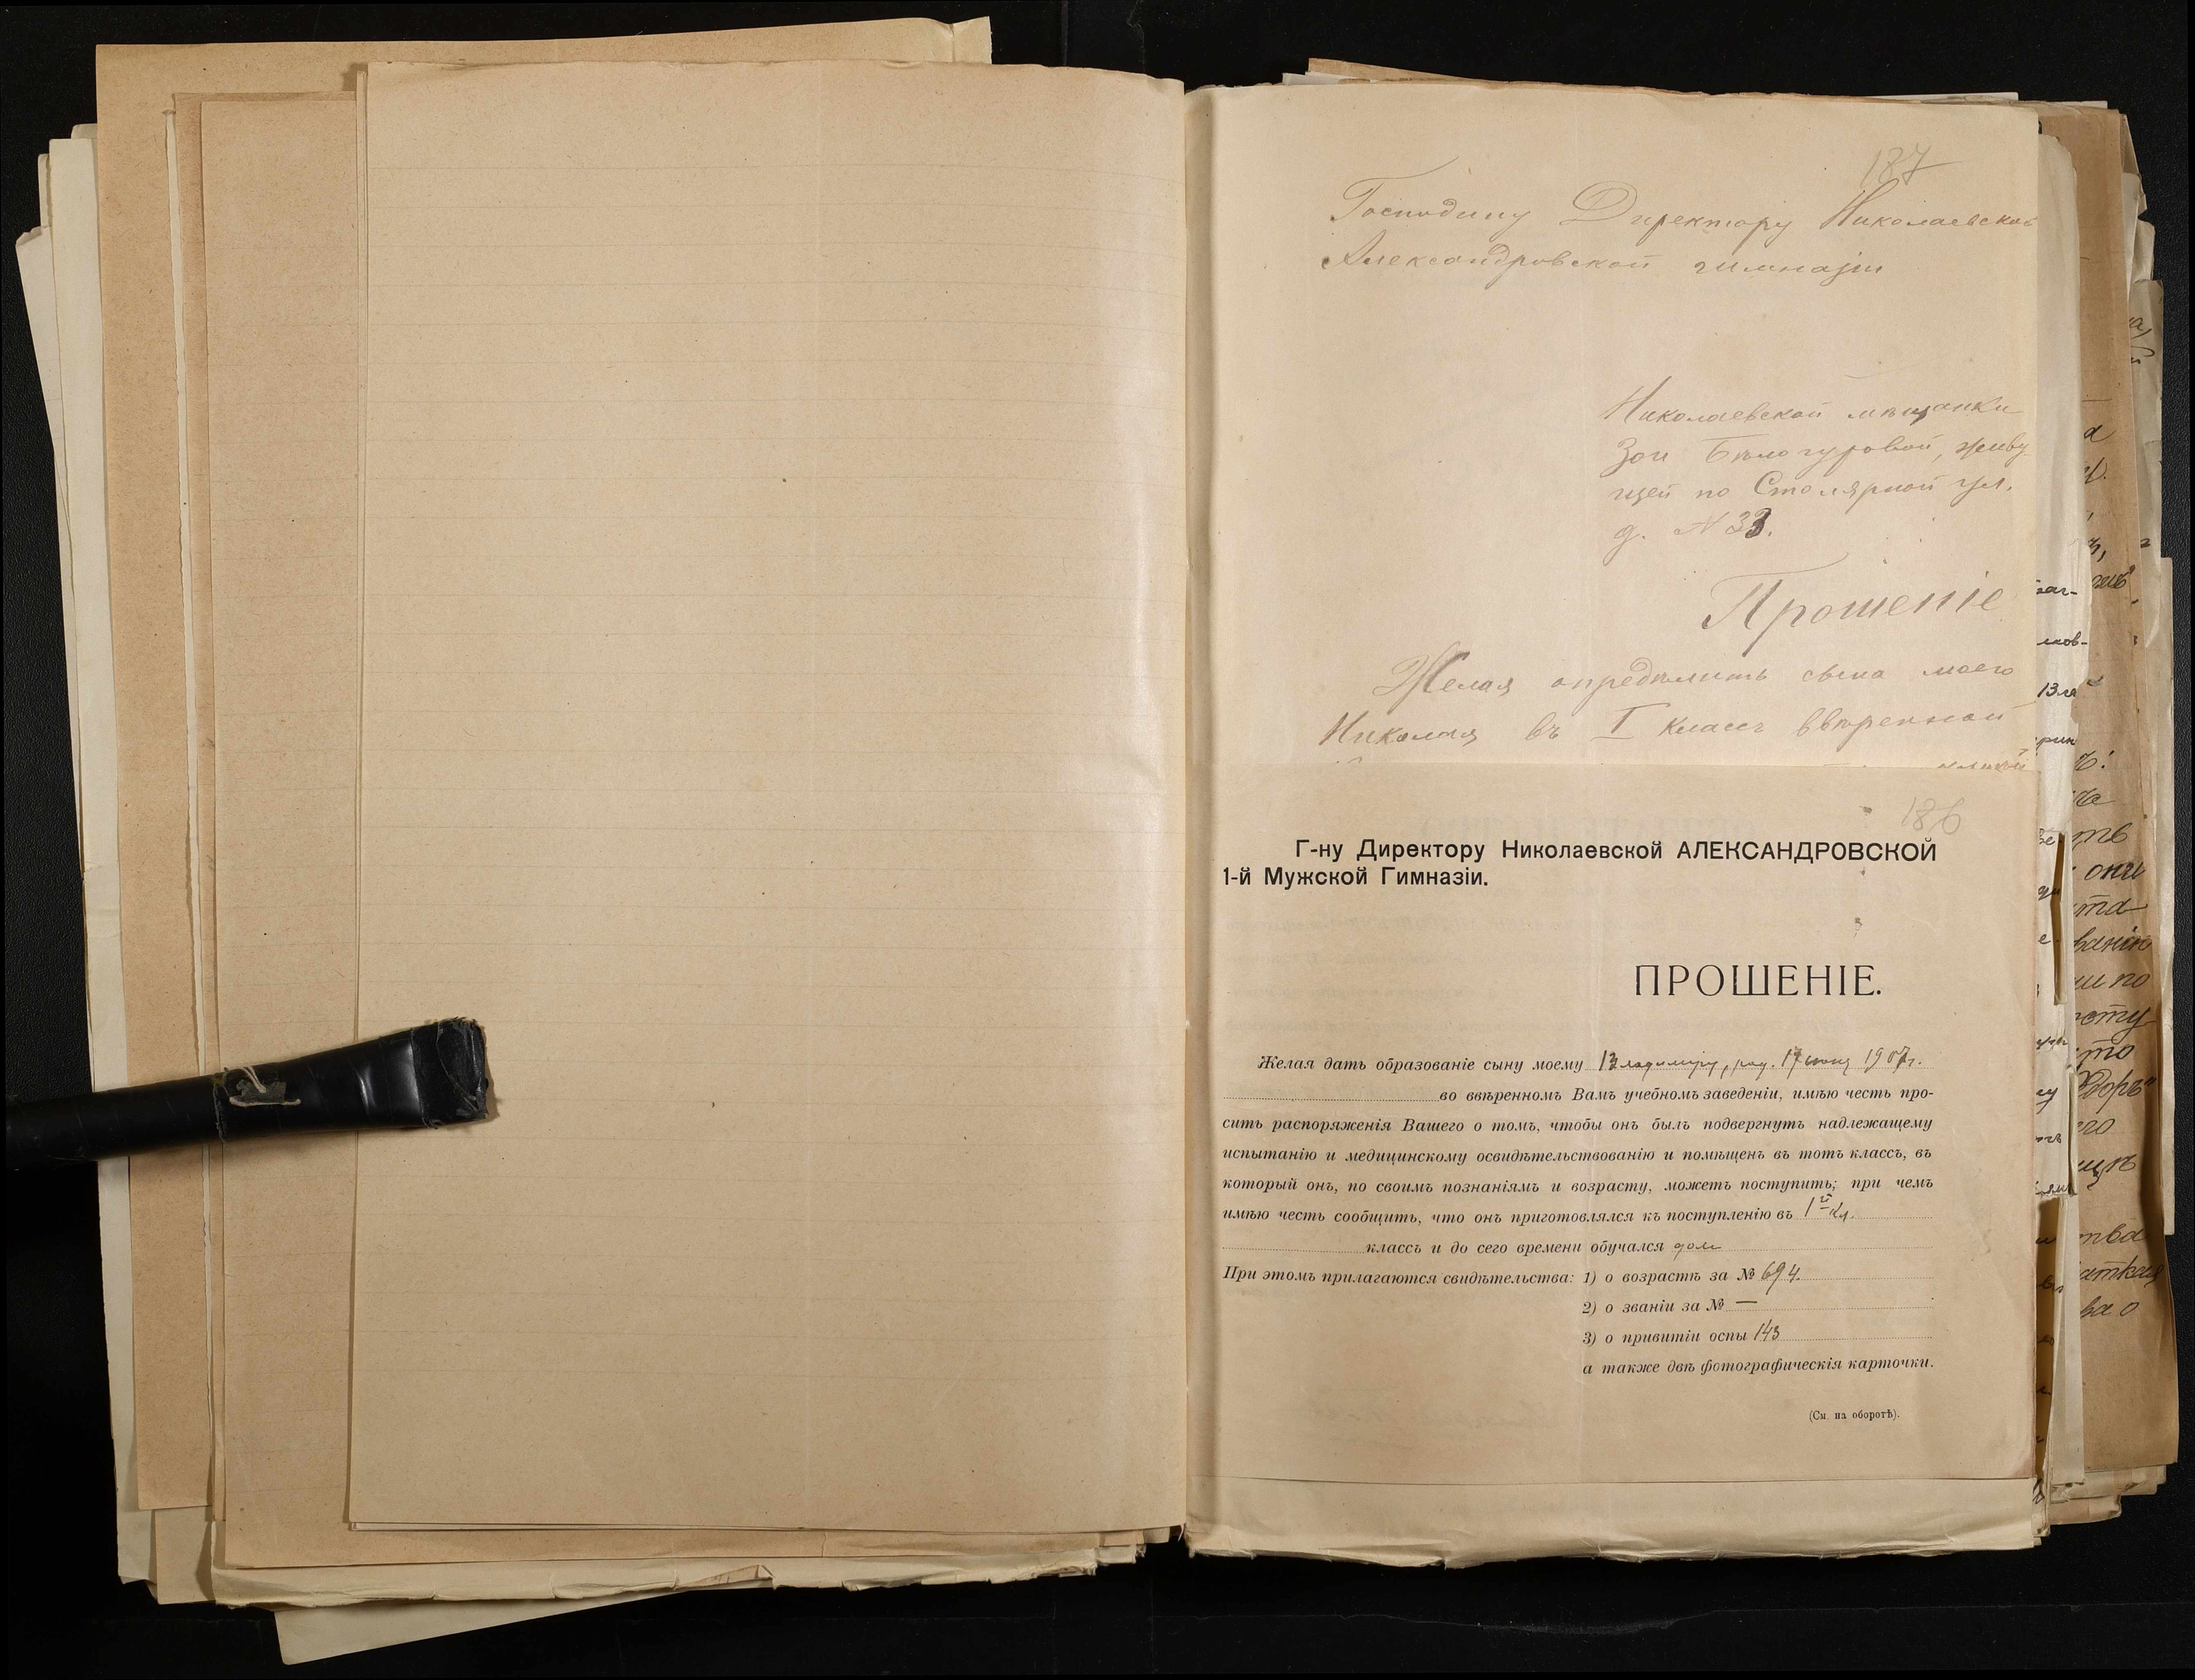 187
Господину Директору Николаевской
Александровской гимназіи
Николаевской мѣщанки
Зои Бѣлогуровой, живу
щей по Столярной ул.
д. № 33.
Прошеніе
Желая опредѣлить сына моего
Николая въ I классъ ввѣренной
186
Г-ну Директору Николаевской АЛЕКСАНДРОВСКОЙ
1-й Мужской Гимназіи.
ПРОШЕНІЕ.
Желая дать образованіе сыну моему Владимиру, род. 17 іюня 1907г.
во ввѣренномъ Вамъ учебномъ заведеніи, имѣю честь про-
сить распоряженія Вашего о томъ, чтобы онъ былъ подвергнутъ надлежащему
испытанію и медицинскому освидѣтельствованію и помѣщенъ въ тотъ классъ, въ
который онъ, по своимъ познаніямъ и возрасту, можетъ поступить; при чемъ
имѣю честь сообщить, что онъ приготовлялся къ поступленію въ 1й кл.
классъ и до сего времени обучался дом
При этомъ прилагаются свидѣтельства: 1) о возрастѣ за № 694.
2) о званіи за № —
3) о привитіи оспы 143
а также двѣ фотографическія карточки.
(См. на оборотѣ).